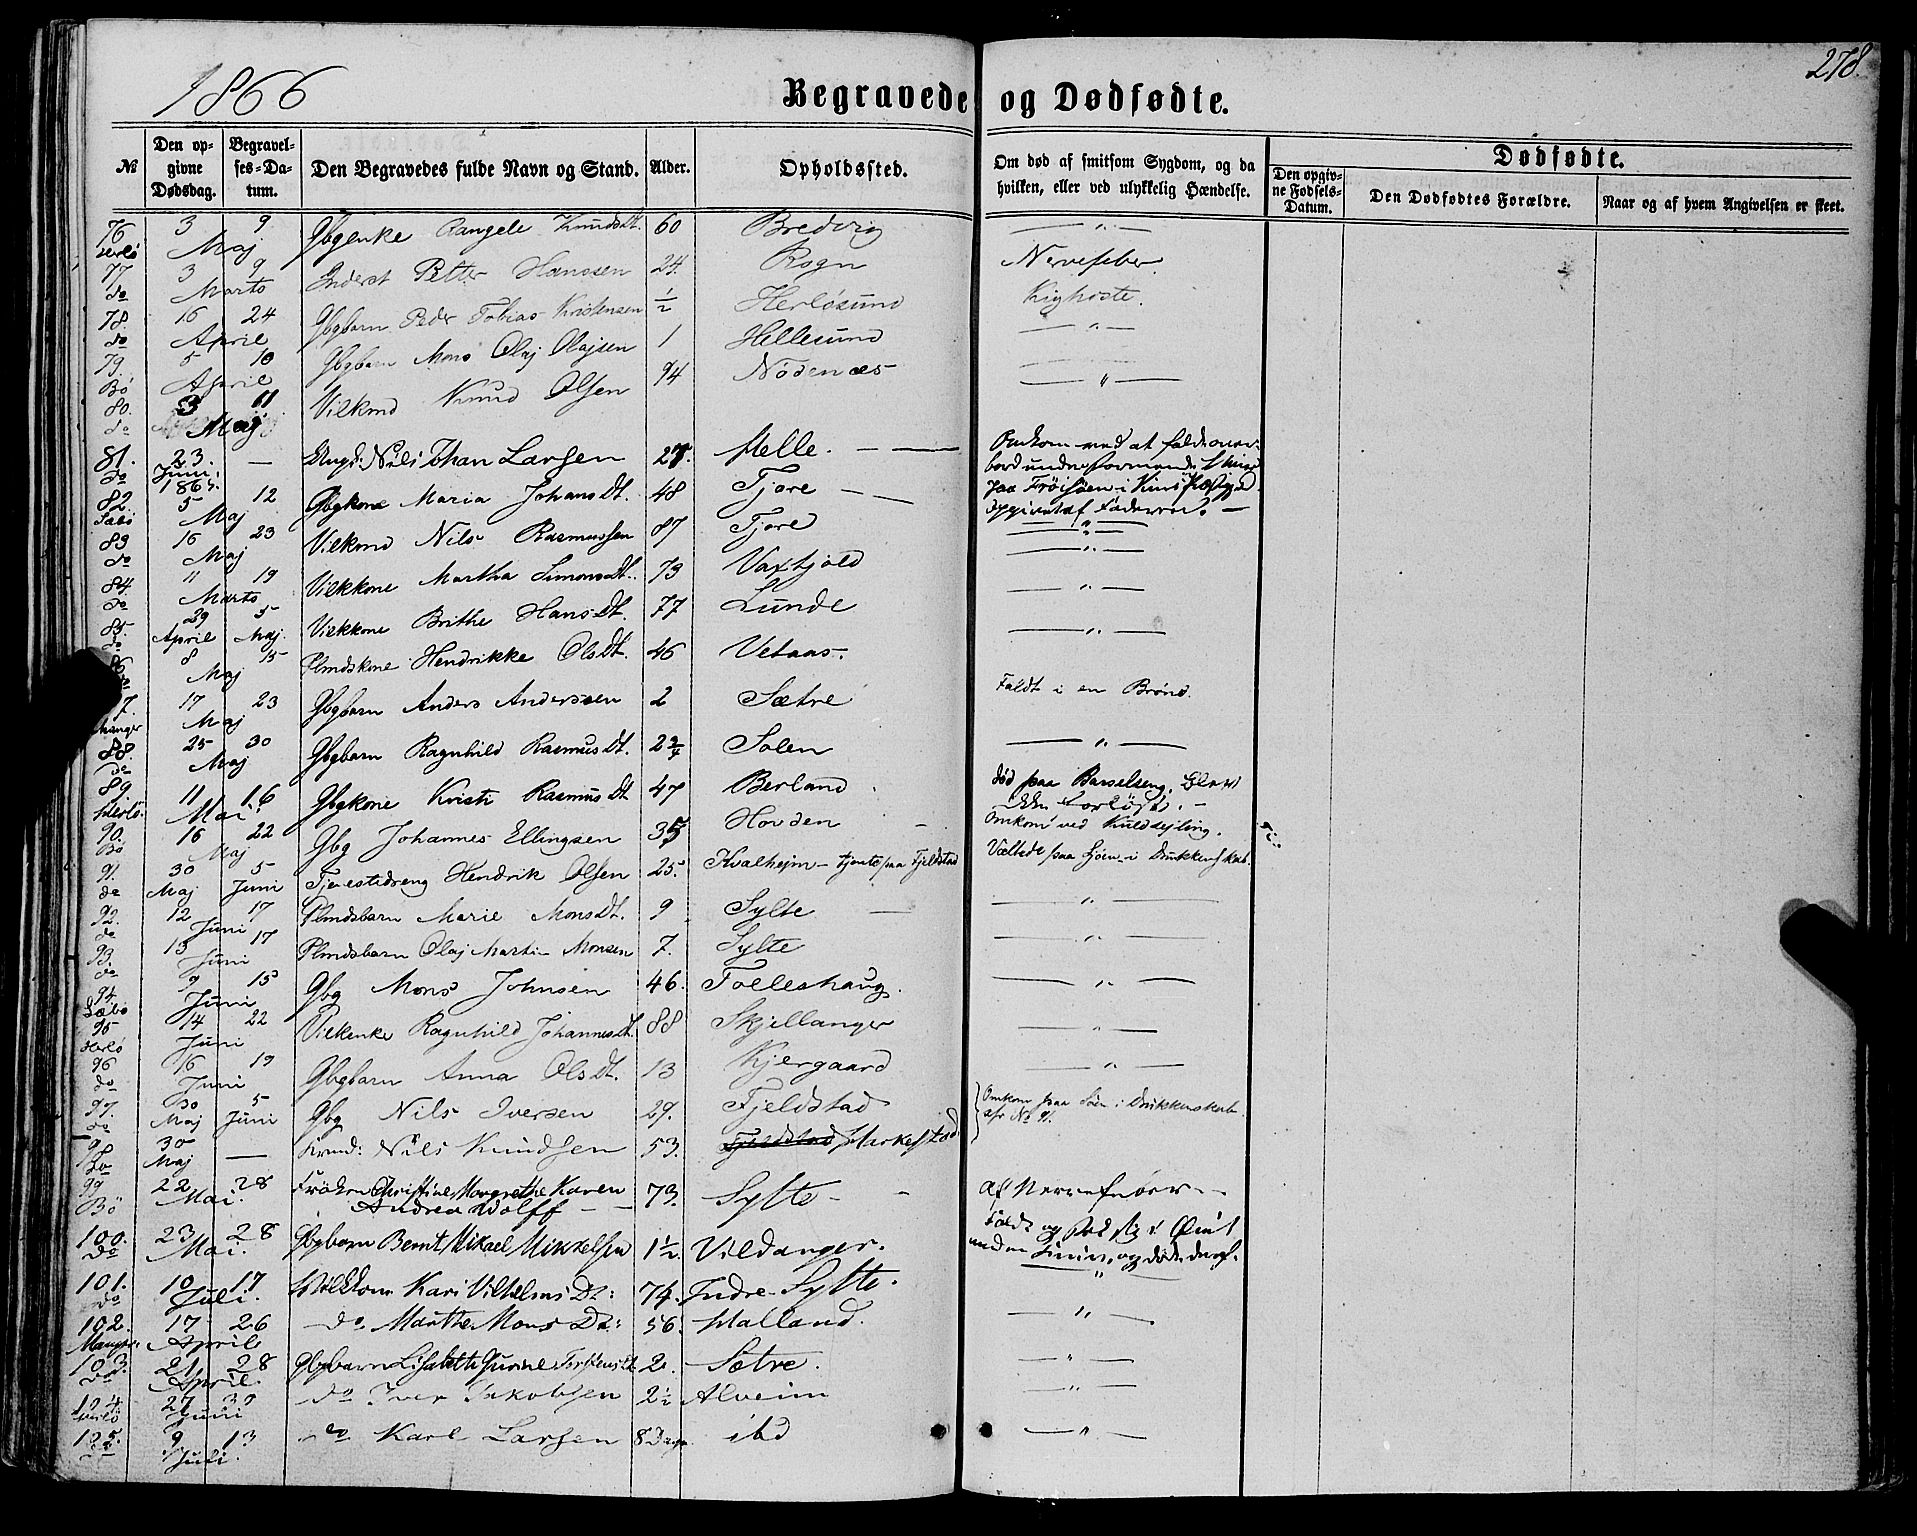 1866
278.
Begravede og Dødfødte.
№
Den opgivne Dødsdag.
Begravelses-Datum.
Den Begravedes fulde Navn og Stand.
Alder.
Opholdssted.
Om død af smitsom Sygdom, og da hvilken, eller ved ulykkelig Hændelse.
Dødfødte.
Den opgivne Fødsels-Datum.
Den Dødfødtes Forældre.
Naar og af hvem Angivelsen er skeet.
76 Herlö 3 9 Maj Gbgenke Rangele Knudsdt. 60 Bredvig — " —
77 do 3 9 Marts Inderst Petter Hanssen 24. Rogn Nervefeber.
78. do 16 24 April Gbgbarn Peder Tobias Kristensen ½ Herlösund Kighoste.
79. Bö 5 10 April Gbgbarn Mons Olaj Olajsen 1 Hellesund — " —
80. do 3 11 Maj Vilkmd Knud Olsen 94 Nödenæs — " —
81. do 23. Juni 1865. — Ungk: Nils Johan Larsen 27. Helle. — Omkom ved at falde overbord under
paa Fröisöen i Kins
opgivet af Faderen. —
82 Sæbö 5 12 Maj Gbgkone Maria Johansdt. 48 Tjore — — " —
83 do 16 23 Maj Vilkmd Nils Rasmussen 87 Tjore — " —
84. do 11 19 Marts Vilkkone Martha Simonsdt. 73 Vaxtjold — " —
85. do 29 5 April Maj. Vilkkone Brithe Hansdt. 77 Lunde — " —
8 15 Maj Plmdskone Hendrikke Olsdt. 46 Vetaas. 
7. 17 23 Maj Gbgbarn Anders Anderssen 2 Sætre Faldt i en Brönd.
88. do 25 30 Maj Gbgbarn Ragnhild Rasmusdt. 2¾ Solen — " —
89 Herlö. 11 16 Mai. Gbgkone Kristi Rasmusdt 47 Berland död paa Barselseng, blev
ikke Forlöst. —
90. Bö 16 22 Maj Gbg Johannes Ellingsen 35 Hovden — Omkom ved Kuldsejling.
91. do 30 5 Maj Juni Tjenestedreng Hendrik Olsen 25. Kvalhejm — tjente paa Fjeldstad Væltede paa Sjöen i Drukkenskab.
92. do 12 17 Juni Plmdsbarn Marie Monsdt. 9 Sylte — — " —
93. do 13 17 Juni Plmdsbarn Olaj Martin Monsen 7. Sylte — " —
94. Sæbö 9 15 Juni Gbg Mons Johnsen 46. Toelleshaug. — " —
95 Herlö 14 22 Juni Vilkenke Ragnhild Johannesdt. 88 Skjellanger — " —
96 do 16 19 Juni Gbgbarn Anna Olsdt. 13 Kjergaard — " —
97. do 30 5 Maj Juni Gbg Nils Iversen 29. Fjeldstad Omkom paa Söen i Drukkenskab
cfr No 91.
98 do 30 Maj — Nils Knudsen 53. Fjeldstad Markestad
99 Bö 22 28 Mai. Fröken Christine Margrethe Karen
Andrea Wolff — — 73. Sylte — — Af Nervefeber —
100. do 23 28 Mai. Gbgbarn Bernt Mikael Mikkelsen 1½. Vildanger.
101. do 10 17 Juli. Vilkkone Kari Vilhelmsdt: 74. Indre-Sylte. — " —
102. Manger. 17 26 April do Marthe Monsdt: 56. Halland. — " —
103. do 21 28 April. Gbgbarn Lisabeth Gurine Torstensdt 2. Sætre. — " —
104 Herlö 27 30 Juni do Iver Jakobsen 2½ Alveim — " —
105. do 9 13 Juli. do Karl Larsen 8 Dage ibd — " —